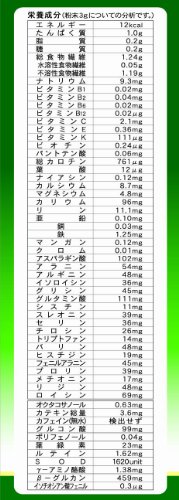 栄養成分(粉末3gについての分析です。)
エネルギー 12kcal
たんぱく質 1.0g
脂質 0.2g
糖質 0.2g
総食物繊維 1.24g
水溶性食物繊維 0.05g
不溶性食物繊維 1.19g
ナトリウム 9.3mg
ビタミンB1 0.02mg
ビタミンB2 0.04mg
ビタミンB6 0.02mg
ビタミンB12 0.02μg
ビタミンC 2.1mg
ビタミンE 0.36mg
ビタミンK 111μg
ビオチン 0.24μg
パントテン酸 0.06mg
総カロテン 761μg
葉酸 12μg
ナイアシン 0.12mg
カルシウム 8.7mg
マグネシウム 4.8mg
カリウム 96mg
リン 11.1mg
亜鉛 0.10mg
銅 0.03mg
鉄 1.25mg
マンガン 0.12mg
クロム 0.01mg
アスパラギン酸 102mg
アラニン 54mg
アルギニン 48mg
イソロイシン 36mg
グリシン 45mg
グルタミン酸 111mg
シスチン 11mg
スレオニン 39mg
セリン 36mg
チロシン 26mg
トリプトファン 14mg
バリン 48mg
ヒスチジン 19mg
フェニルアラニン 45mg
プロリン 39mg
メチオニン 17mg
リジン 48mg
ロイシン 69mg
オクタコサノール 0.63mg
カテキン総量 3.6mg
カフェイン(無水) 検出せず
グルコン酸 99mg
ポリフェノール 0.04g
葉緑素 23mg
ルテイン 1.62mg
SOD 1620unit
γ-アミノ酪酸 1.38mg
β-グルカン 459mg
イソチオシアン酸フェニル 0.3μg